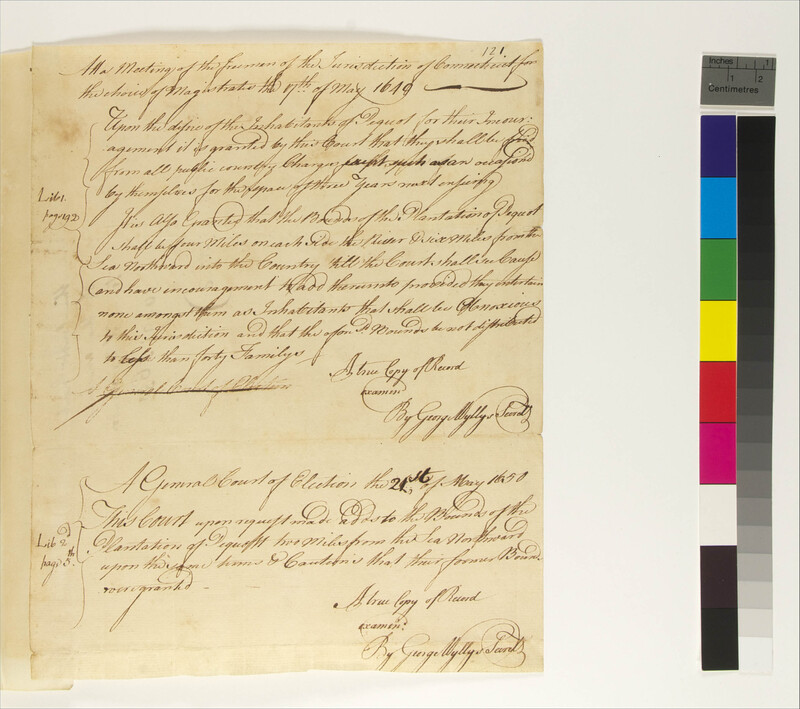 121.
Att a Meeting of the freemen of the Jurisdiction of Connecticut for
the choice of Magistrates the 17th of May 1649
Upon the desire of the Inhabitants of Pequot for their Incour-
agement it is granted by this Court that they shall be free
from all publick country Charges except such as are occasiond
by themselves for the space of three Years next ensuing
Lib 1
page 192
It is Also Granted that the Bounds of the Plantation of Pequot
shall be four Miles on each side the River & six Miles from the
Sea Northward into the Country till the Court shall see Cause
and have encouragement to add thereunto provided they entertain
none amongst them as Inhabitants that shall be Obnoxious
to this Jurisdiction and that the aforsd. Bounds be not distributed
to less than forty Familys
A General Court of Election
A true Copy of Record
examind
By George Wyllys Secret
A General Court of Election the 21st of May 1650
Lib 2d
page 5th.
This Court upon request made adds to the Bounds of the
Plantation of Pequott two Miles from the Sea Northward
upon the same terms & Cautions that their former Bounds
were granted
A true Copy of Record
examind:
By George Wyllys Secret
Inches 1
1 2
Centimetres